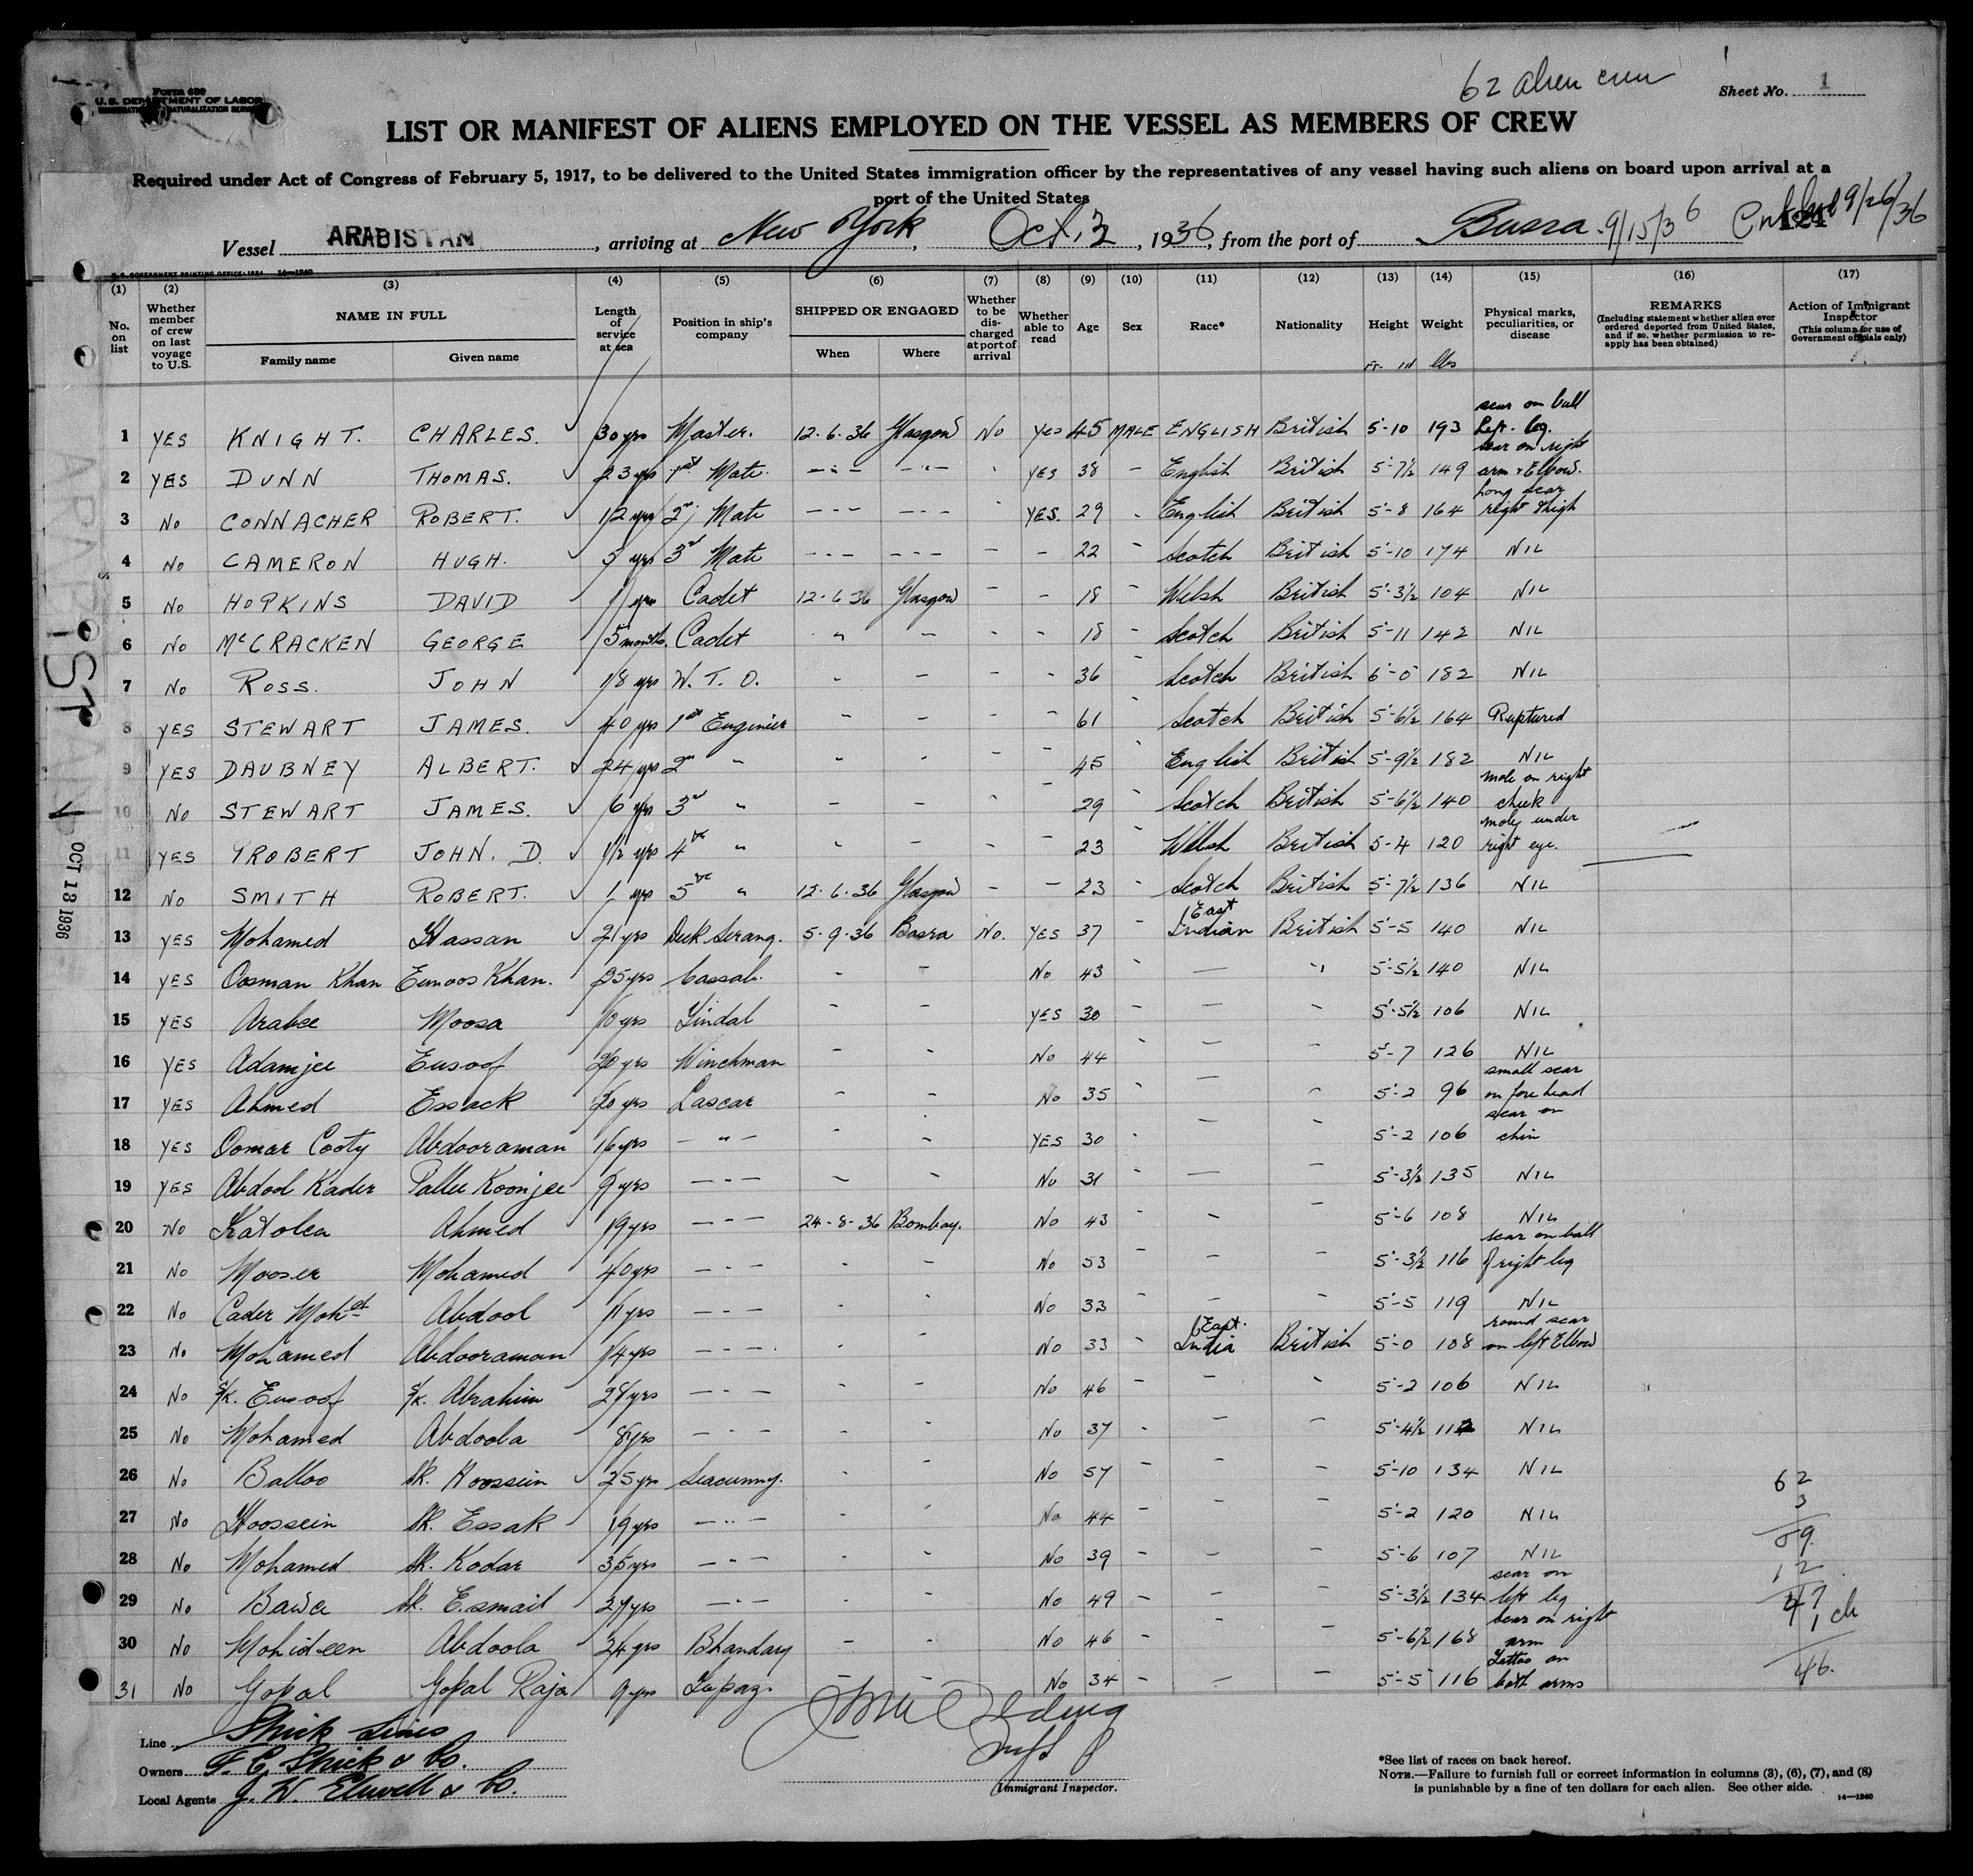 62 alien crew
Form 680
U.S. DEPARTMENT OF LABOR
IMMIGRATION NATURALIZATION SERVICE
Sheet No. 1
LIST OR MANIFEST OF ALIENS EMPLOYED ON THE VESSEL AS MEMBERS OF CREW
Required under Act of Congress of February 5, 1917, to be delivered to the United States immigration officer by the representatives of any vessel having such aliens on board upon arrival at a
port of the United States
Vessel ARABISTAN, arriving at New York, Oct. 3, 1936, from the port of Busra 9/15/36 9/26/36
U. S. GOVERNMENT PRINTING OFFICE: 1934 14—1240
(1) (2) (3) (4) (5) (6) (7) (8) (9) (10) (11) (12) (13) (14) (15) (16) (17)
No. on list
Whether member of crew on last voyage to U.S.
NAME IN FULL
Family name Given name
Length of service at sea
Position in ship's company
SHIPPED OR ENGAGED
When Where
Whether to be discharged at port of arrival
Whether able to read
Age
Sex
Race*
Nationality
Height
Ft. In
Weight
lbs
Physical marks, peculiarities, or disease
REMARKS
(Including statement whether alien ever ordered deported from United States, and if so, whether permission to reapply has been obtained)
Action of Immigrant Inspector
(This column for use of Government officials only)
1 YES KNIGHT. CHARLES. 30 yrs Master. 12-6-36 Glasgow No Yes 45 MALE ENGLISH British 5-10 193 scar on ball Left. leg.
2 YES DUNN THOMAS. 23 yrs 1st Mate. — " — — " — YES 38 — English British 5-7½ 149 scar on right arm & Elbow.
3 No CONNACHER ROBERT. 12 yrs 2nd Mate — " — — " — YES. 29 - English British 5-8 164 Long scar right thigh
4 No CAMERON HUGH. 5 yrs 3rd Mate — " — — " — — — 22 — Scotch British 5-10 174 NIL
5 No HOPKINS DAVID 1 yrs Cadet 12-6-36 Glasgow — — 18 — Welsh British 5-3½ 104 NIL
6 No McCRACKEN GEORGE 5 months. Cadet " — - - 18 — Scotch British 5-11 142 NIL
7 No ROSS. JOHN 18 yrs W. T. O. - — - - 36 Scotch British 6-0 182 NIL
8 YES STEWART JAMES. 40 yrs 1st Engineer — — - — 61 Scotch British 5-6½ 164 Ruptured
9 YES DAUBNEY ALBERT. 24 yrs 2nd " " " — — 45 English British 5-9½ 182 NIL
10 No STEWART JAMES. 6 yrs 3rd " — — - — 29 Scotch British 5-6½ 140 mole on right cheek
11 YES YROBERT JOHN. D. 1½ yrs 4th " - - - — 23 Welsh British 5-4 120 mole under right eye.
12 No SMITH ROBERT. 1 yrs 5th " 12-6-36 Glasgow — — 23 — Scotch British 5-7½ 136 NIL
13 YES Mohamed Hassan 21 yrs Deck Serang. 5-9-36 Basra No. YES 37 - East Indian British 5-5 140 NIL
14 YES Oosman Khan Eunoos Khan. 25 yrs Cassab. - - No 43 - — " 5-5½ 140 NIL
15 YES Arabee Moosa 10 yrs Tindal - - YES 30 - — - 5-5½ 106 NIL
16 YES Adamjee Eusoof 20 yrs Winchman - - No 44 - — - 5-7 126 NIL
17 YES Ahmed Essack 20 yrs Lascar - - No 35 - — " 5-2 96 small scar on forehead
18 YES Oomar Cooty Abdooraman 16 yrs — " — - - YES 30 - - - 5-2 106 scar on chin
19 YES Abdool Kader Pallee Koonjee 9 yrs — " — - - No 31 - — - 5-3½ 135 NIL
20 No Katolea Ahmed 19 yrs — " — 24-8-36 Bombay. No 43 - - - 5-6 108 NIL
21 No Mooser Mohamed 40 yrs — " — - - No 53 - - - 5-3½ 116 scar on ball of right leg
22 No Cader Mohed Abdool 11 yrs — " — - - No 33 - - - 5-5 119 NIL
23 No Mohamed Abdooraman 14 yrs — " — - - No 33 - East. India British 5-0 108 round scar on left Elbow
24 No S/K. Eusoof S/K. Abrahim 28 yrs — " — - - No 46 - - - 5-2 106 NIL
25 No Mohamed Abdoola 8 yrs — " — - - No 37 - - - 5-4½ 112 NIL
26 No Balloo Sk. Hoossein 25 yrs Seacunny. - - No 57 - - - 5-10 134 NIL
27 No Hoossein Sk. Essak 19 yrs — " — - - No 44 - - - 5-2 120 NIL
28 No Mohamed Sk. Kadar 35 yrs — " — - - No 39 - - - 5-6 107 NIL
29 No Bawa Sk. Esmail 27 yrs — " — - - No 49 - - - 5-3½ 134 scar on left leg
30 No Mohideen Abdoola 24 yrs Bhandary - - No 46 - - - 5-6½ 168 scar on right arm
31 No Gopal Gopal Raja 9 yrs Topaz. - - No 34 - - - 5-5 116 Tattoo on both arms
62
3
59
12
47
1 ch
46.
ARABISTAN
OCT 13 1936
Line Strick Lines
Owners F. C. Strick & Co.
Local Agents J. W. Elwell & Co.
Immigrant Inspector.
*See list of races on back hereof.
NOTE.—Failure to furnish full or correct information in columns (3), (6), (7), and (8)
is punishable by a fine of ten dollars for each alien. See other side.
14—1240